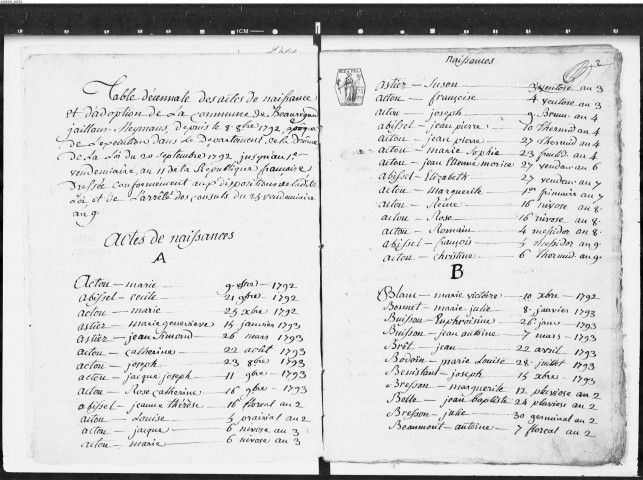 Table décennale des actes de naissance
et d'adoption de la commune de Beauregard
jaillans, Meymans, depuis le 8 8bre 1792, époque
de l'exécution dans le Département de la Drôme
de la loi du 20 septembre 1792 jusqu'au 1er
vendemiaire, an 11 de la République françoise
Dressée conformement aux dispositions de la dite
loi, et de l'arrêté des consuls du 25 vendemiaire
an 9.
Actes de naissances
A
Actou — marie — 9 8bre — 1792
abissel — cecile — 21 9bre — 1792
actou — marie — 25 xbre — 1792
astier — marie genevieve — 14 janvier 1793
astier — jean Simond — 26 mars 1793
actou — catherine — 22 août 1793
actou — joseph — 23 8bre 1793
actou — jacque joseph — 11 9bre — 1793
actou — Rose catherine — 16 9bre — 1793
abissel — jeanne thérèse — 16 floreal an 2
actou — Louise — 5 prairial an 2
actou — jaque — 6 nivose an 3
actou — marie — 6 nivose an 3
naissances
2
astier — Suson — 3 ventose an 3
actou — françoise — 4 ventose an 3
actou — joseph — 9 Brum. an 4
abissel — jean pierre — 10 thermid an 4
actou — jean pierre — 27 thermid an 4
actou — marie Sophie — 23 fructid. an 4
actou — jean Etienne morice — 27 vendem. an 6
abissel — Elizabeth — 27 vendem. an 7
actou — marguerite — 1er frimaire an 7
actou — Reine — 16 nivose an 8
actou — Rose — 16 nivose an 8
actou — Romain — 4 messidor an 8
abissel — françois — 5 messidor an 9
actou — christine — 6 thermid. an 9
B
Blanc — marie victoire — 10 xbre — 1792
Bonnet — marie julie — 8 janvier 1793
Buisson — Euphroisine — 26 janv. 1793
Buisson — jean antoine — 7 mars — 1793
Brêt — jean — 22 avril 1793
Bodoin — marie Louise — 28 juillet 1793
Benistant — joseph — 15 xbre — 1793
Bresson — marguerite — 12 pluviose an 2
Belle — jean baptiste — 24 pluviose an 2
Bresson — julie — 30 germinal an 2
Beaumont — antoine — 7 floreal an 2